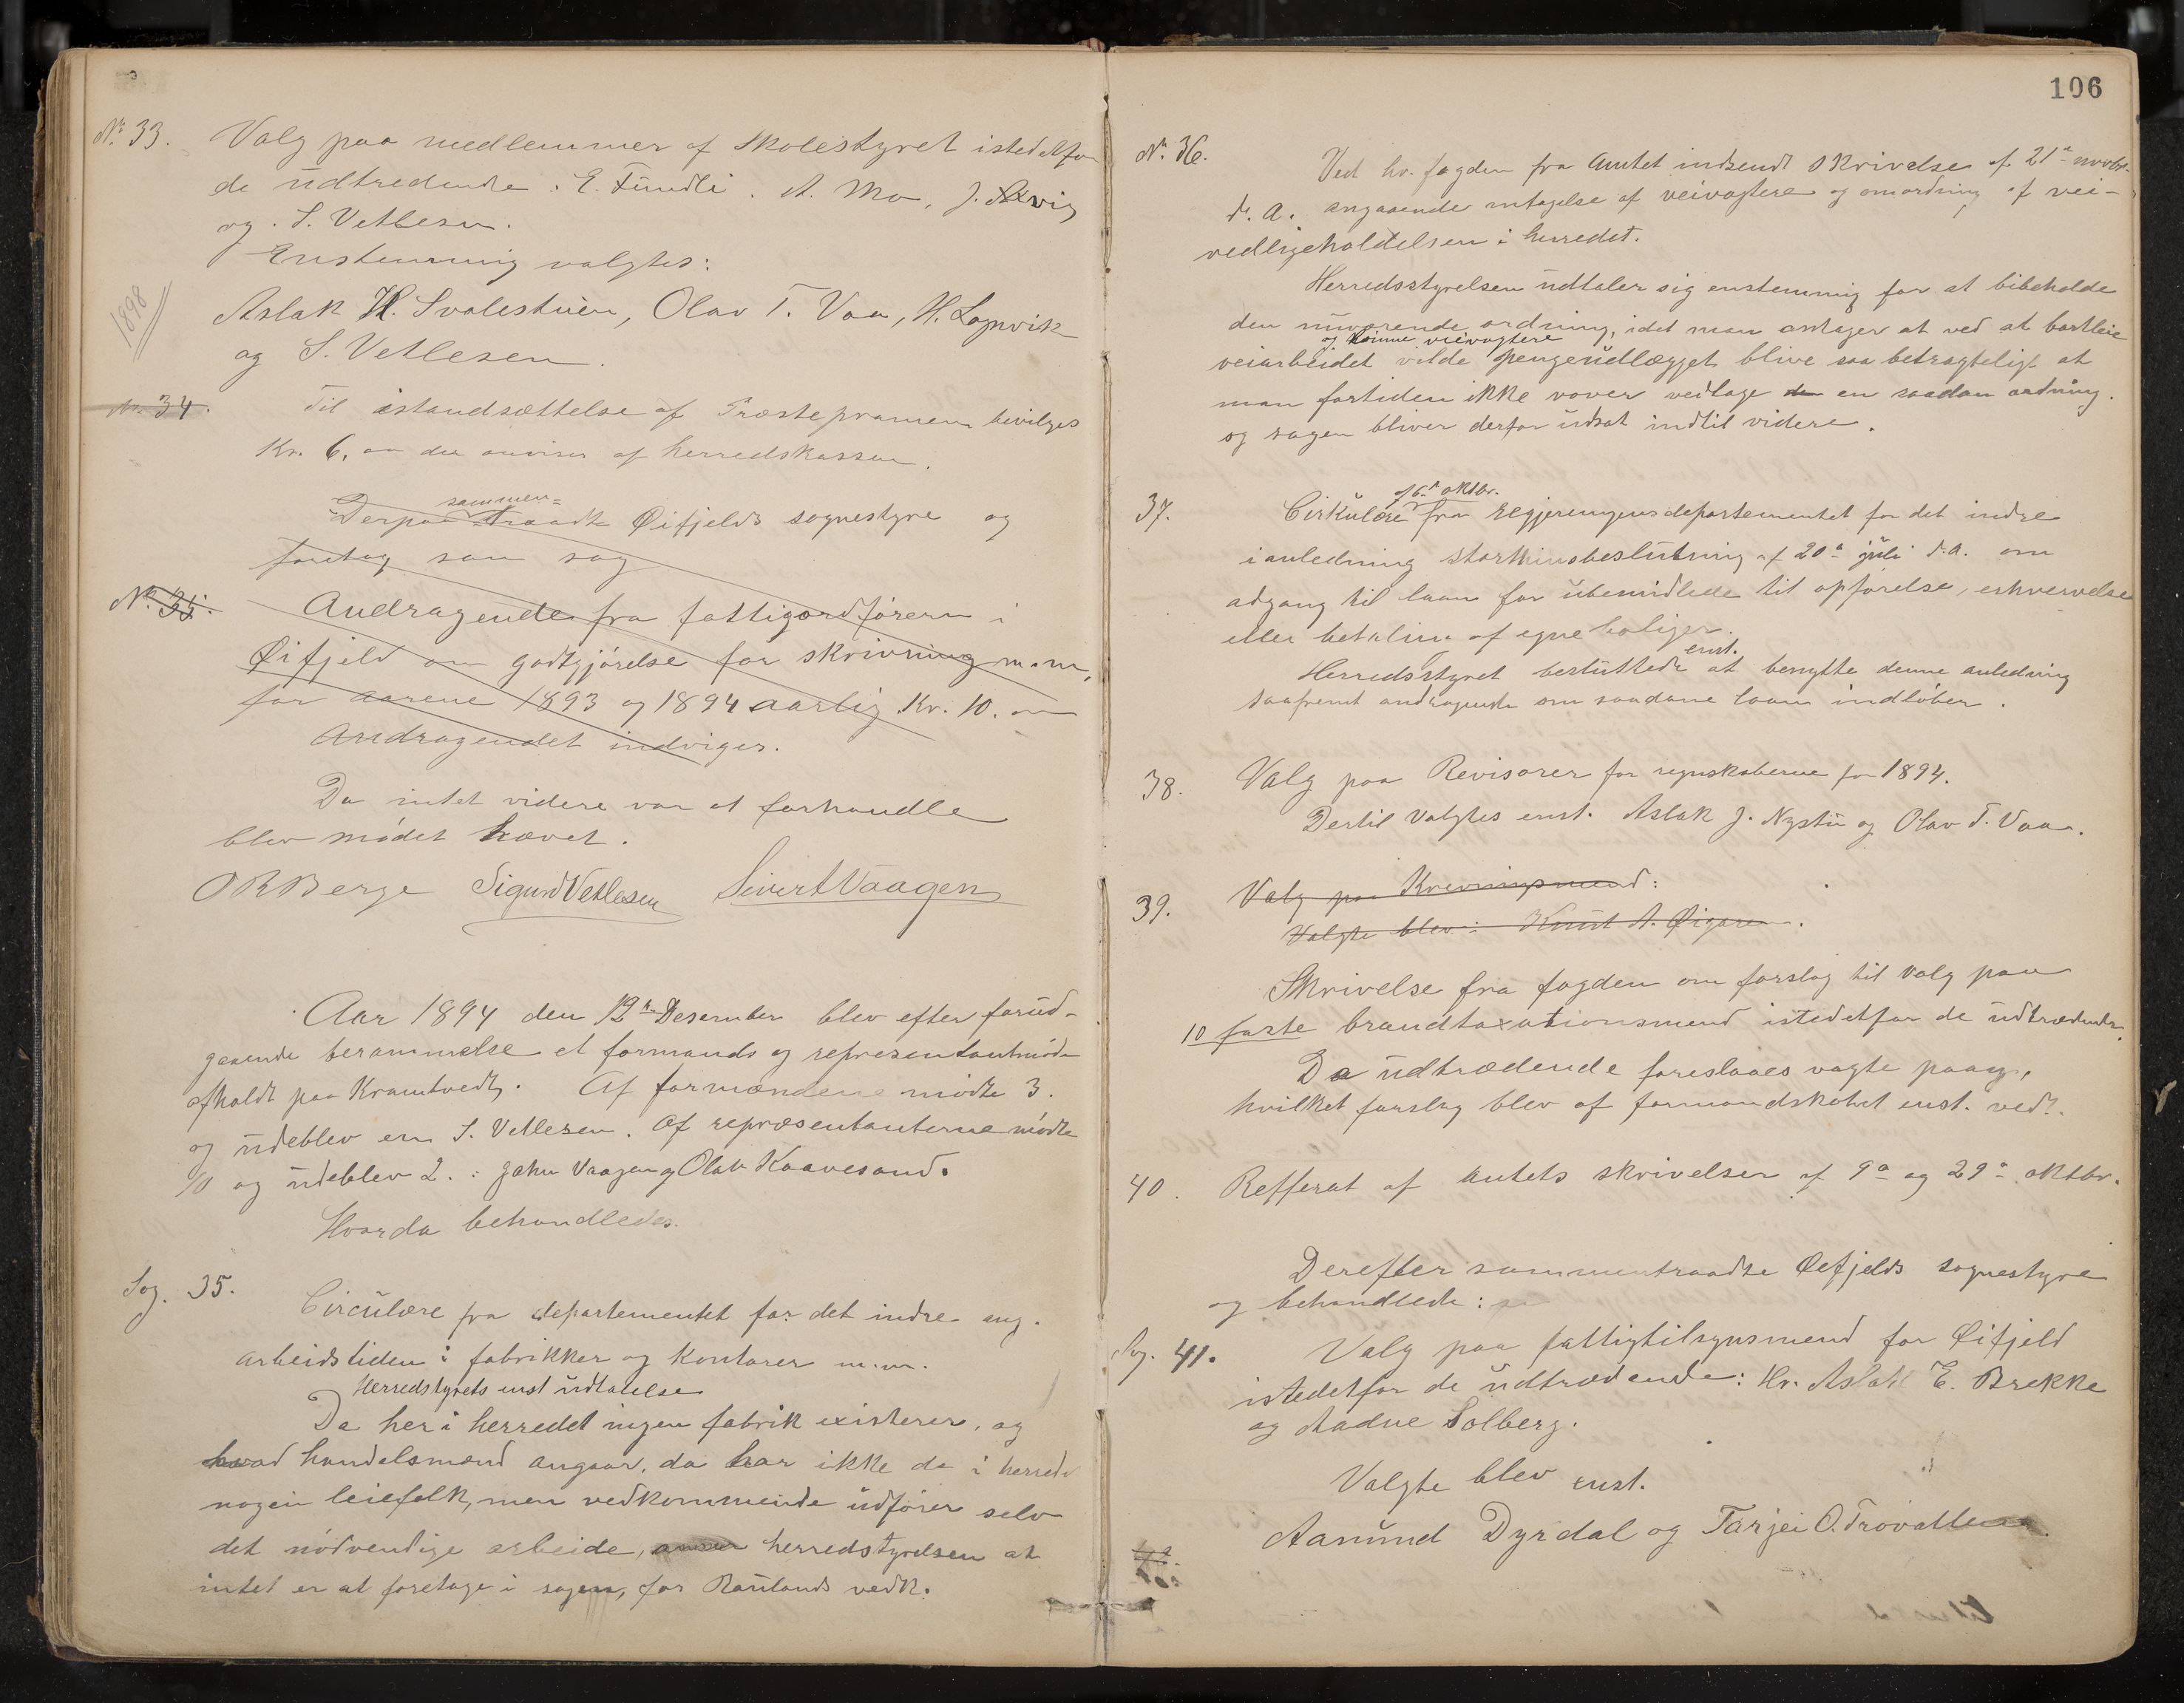 No. 33. Valg paa medlemmer af Skolestyret istedetfor
de udtredende: E. Tundli. A. Mo, J.
og S. Vetlesen.
Enstemmig valgtes:
1898
Aslak H. Svalestuen, Olav T. Vaa, H. Lognvik
og S. Vetlesen.
No. 34. Til istandsættelse af Præstepramen bevilges
Kr. 6, som anvises af herredskassen.
sammen=
Derpaa traadte Øifjelds sognestyre og
foretog som sag
No. 35. Andragende fra fattigordføreren i
Øifjeld om godtgjørelse for skrivning m.m,
for aarene 1893 og 1894 aarlig Kr. 10.
Andragendet indviges.
Da intet videre var at forhandle
blev mødet hævet.
O R Berge Sigurd Vetlesen Sivert Vaagen
Aar 1894 den 12te Desember blev efter forud-
gaaende berammelse et formands og representantmøde
afholdt paa Kramtvedt. Af formændene mødte 3.
og udeblev en S. Vetlesen. Af repræsentanterne mødte
10 og udeblev 2. : John Vaagen og Olav Kaavesand.
Hvorda behandledes.
Sag. 35. Circulære fra departementet for det indre ang.
arbeidstiden i fabrikker og Kontorer m.m.
Herredstyrets enst udtalelse
Da her i herredet ingen fabrik existerer, og
hvad handelsmænd angaar, da har ikke de i herredet
nogen leiefolk, men vedkommende udfører selv
det nødvendige arbeide, anser herredstyrelsen at
intet er at foretage i sagen, for Raulands vedk.
106
No. 36. Ved hr. fogden fra Amtet indsendt Skrivelse af 21de novbr.
d. A. angaaende antagelse af veivogtere og omordning af vei-
vedligeholdelsen i herredet.
Herredsstyrelsen udtaler sig enstemmig for at bibeholde
den nuværende ordning, idet man antager at ved at bortleie
og lønne veivogtere
veiarbeidet vilde pengeudlægget blive saa betragteligt at
man fortiden ikke vover vedtage en saadan ordning.
og sagen bliver derfor udsat indtil videre.
af 6te oktbr.
37. Cirkulære fra Regjeringensdepartementet for det indre
i anledning Storthinsbeslutning af 20de juli d.A. om
adgang til laan for ubemidlede til opførelse, erhvervelse
eller betaling af egne boliger.
enst.
Herredsstyret besluttede at benytte denne anledning
saafremt andragende om saadane laan indløber.
38. Valg paa Revisorer for regnskaberne for 1894.
Dertil valgtes enst. Aslak J. Nystu og Olav T. Vaa.
39. Valg paa Krevningsmend:
Valgte blev: Knut A. Øigaren.
Skrivelse fra fogden om forslag til valg paa
10 faste brandtaxationsmend istedetfor de udtrædende.
De udtrædende foreslaaes vagte paany,
hvilket forslag blev af formandskabet enst. vedt.
40. Refferat af Amtets skrivelser af 9de og 29de oktbr.
Derefter sammentraadte Øifjelds sognestyre
og behandlede:
Sag. 41. Valg paa fattigtilsynsmend for Øifjeld
istedetfor de udtrædende: Hr. Aslak E. Brekke
og Aadne Solberg.
Valgte blev enst.
Aamund Dyrdal og Tarjei O. Trovatten.
42.